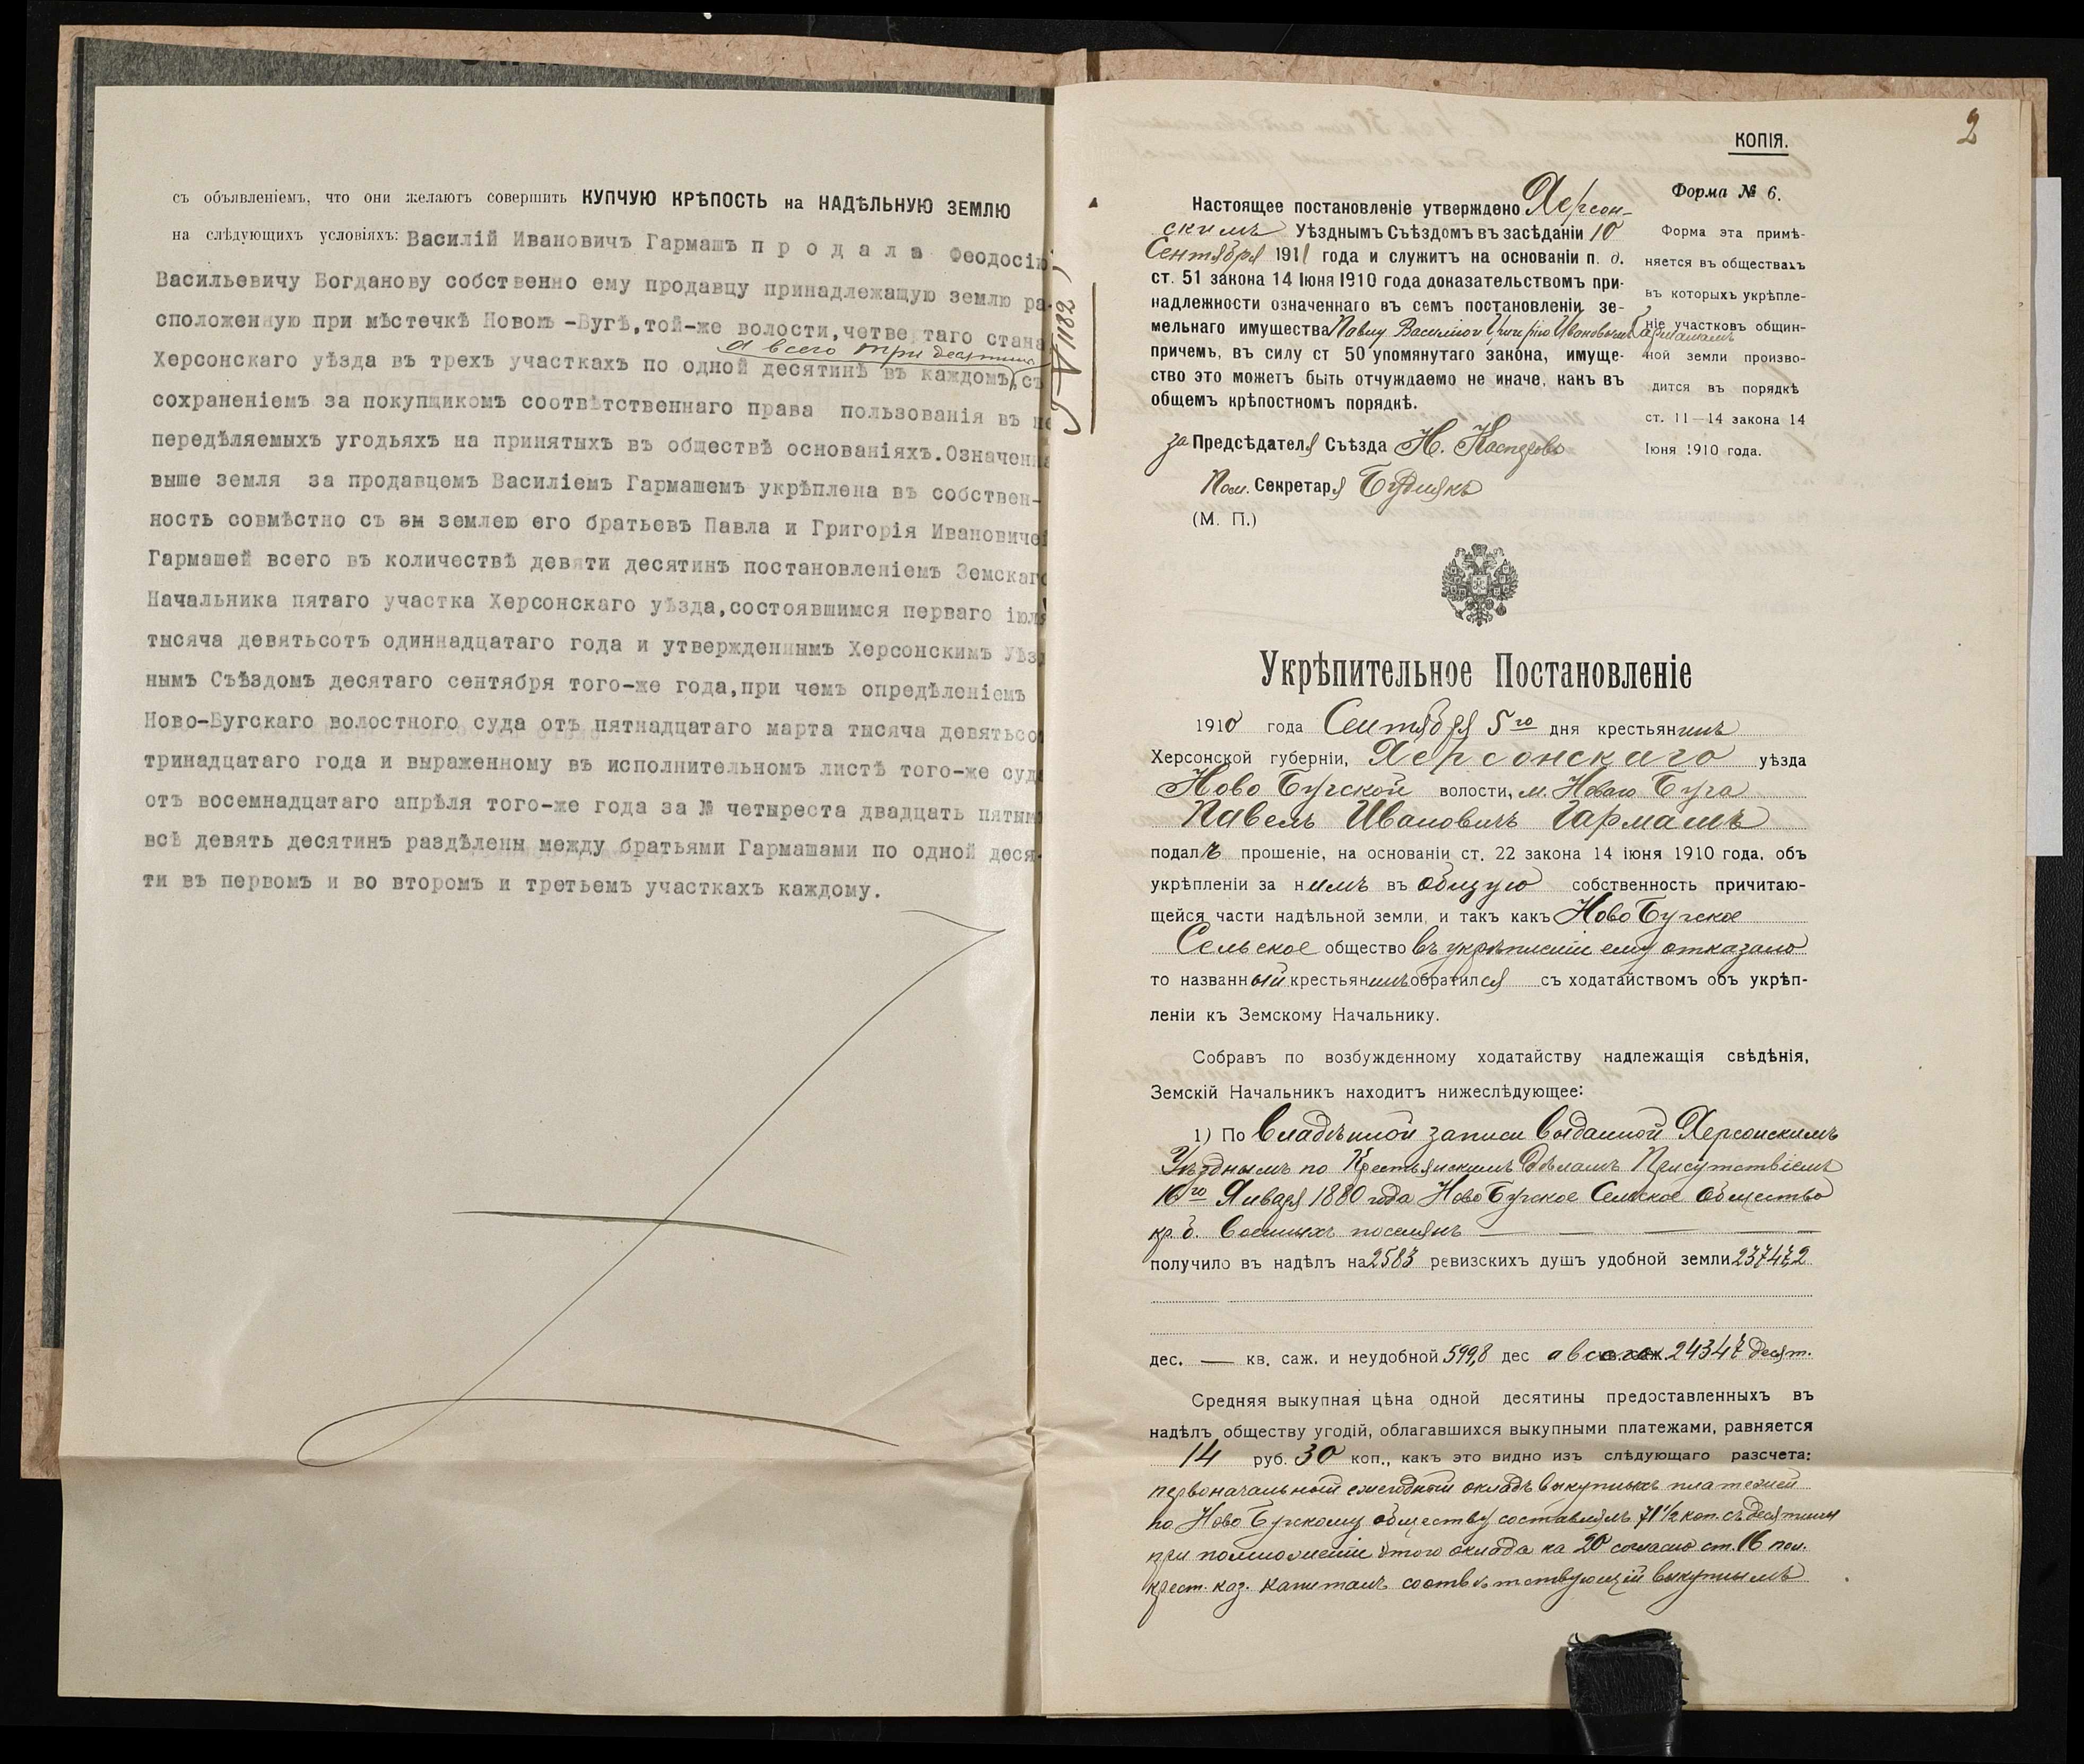 съ объявленіемъ, что они желаютъ совершить КУПЧУЮ КРѢПОСТЬ на НАДѢЛЬНУЮ ЗЕМЛЮ
на слѣдующихъ условіяхъ: Василій Ивановичъ Гармашъ п р о д а л а Феодосію
Васильевичу Богданову собственно ему продавцу принадлежащую землю ра-
сположенную при мѣстечкѣ Новомъ -Бугѣ,той-же волости,четвертаго стана
а всего три десятины
Херсонскаго уѣзда въ трехъ участкахъ по одной десятинѣ въ каждомъ,съ
сохраненіемъ за покупщикомъ соотвѣтственнаго права пользованія въ не
передѣляемыхъ угодьяхъ на принятыхъ въ обществѣ основаніяхъ.Означенна
выше земля за продавцемъ Василіемъ Гармашемъ укрѣплена въ собствен-
ность совмѣстно съ зм землею его братьевъ Павла и Григорія Ивановичей
Гармашей всего въ количествѣ девяти десятинъ постановленіемъ Земскаго
Начальника пятаго участка Херсонскаго уѣзда,состоявшимся перваго іюля
тысяча девятьсотъ одиннадцатаго года и утвержденнымъ Херсонскимъ Уѣзд
нымъ Съѣздомъ десятаго сентября того-же года,при чемъ опредѣленіемъ
Ново-Бугскаго волостного суда отъ пятнадцатаго марта тысяча девятьсот
тринадцатаго года и выраженному въ исполнительномъ листѣ того-же суда
отъ восемнадцатаго апрѣля того-же года за № четыреста двадцать пятымъ
всѣ девять десятинъ раздѣлены между братьями Гармашами по одной деся-
ти въ первомъ и во второмъ и третьемъ участкахъ каждому.
№ 1182
2
КОПІЯ.
Форма № 6.
Форма эта примѣ-
няется въ обществахъ
въ которыхъ укрѣпле-
ніе участковъ общин-
ной земли произво-
дится въ порядкѣ
ст. 11—14 закона 14
Іюня 1910 года.
Настоящее постановленіе утверждено Херсон-
скимъ Уѣзднымъ Съѣздомъ въ засѣданіи 10
Сентября 1911 года и служитъ на основаніи п. д.
ст. 51 закона 14 Іюня 1910 года доказательствомъ при-
надлежности означеннаго въ семъ постановленіи зе-
мельнаго имущества Павлу Василію и Григорію Ивановымъ Гармашамъ
причемъ, въ силу ст 50 упомянутаго закона, имуще-
ство это можетъ быть отчуждаемо не иначе, какъ въ
общемъ крѣпостномъ порядкѣ.
за Предсѣдателя Съѣзда Н.
Пом. Секретаря
(М. П.)
Укрѣпительное Постановленіе
1910 года Сентября 5го дня крестьянинъ
Херсонской губерніи, Херсонскаго уѣзда
Ново Бугской волости, м. Новаго Буга
Павелъ Ивановичъ Гармашъ
подалъ прошеніе, на основаніи ст. 22 закона 14 іюня 1910 года, объ
укрѣпленіи за нимъ въ общую собственность причитаю-
щейся части надѣльной земли, и такъ какъ Ново Бугское
Сельское общество въ укрѣпленіи ему отказало
то названный крестьянинъ обратился съ ходатайствомъ объ укрѣп-
леніи къ Земскому Начальнику.
Собравъ по возбужденному ходатайству надлежащія свѣдѣнія,
Земскій Начальникъ находитъ нижеслѣдующее:
1) По владѣнной записи выданной Херсонскимъ
Уѣзднымъ по Крестьянскимъ Дѣламъ Присутствіемъ
16го Января 1880 года Ново Бугское Сельское Общество
кр. б. военныхъ поселянъ
получило въ надѣлъ на 2583 ревизскихъ душъ удобной земли 23747,2
дес. — кв. саж. и неудобной 599,8 дес а всего 24347 десят.
Средняя выкупная цѣна одной десятины предоставленныхъ въ
надѣлъ обществу угодій, облагавшихся выкупными платежами, равняется
14 руб. 30 коп., какъ это видно изъ слѣдующаго разсчета:
первоначальный ежегодный окладъ выкупныхъ платежей
по Ново Бугскому обществу составлялъ 71½ коп. съ десятины
при помноженіи этого оклада на 20 согласно ст. 16 пол.
крест. каз. капиталъ соотвѣтствующій выкупнымъ